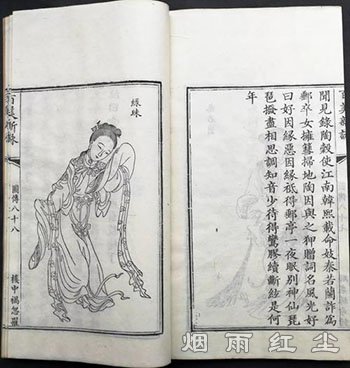 百美新詠
聞見錄陶穀使江南韓熙載命妓秦若蘭詐為
郵卒女擁篲掃地陶因與之狎贈詞名風光好
曰好因緣惡因緣秖得郵亭一夜眠別神仙琵
琶撥盡相思調知音少待得鸞膠續斷絃是何
年
綠珠
百美新詠
圖傳 八十八
烟雨红尘